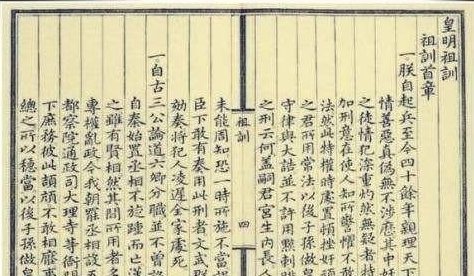 皇明祖訓
祖訓首章
一朕自起兵至今四十餘年親理天下
情善惡真偽無不涉歷其中奸
之徒情犯深重灼然無疑者特
加刑意在使人知所警懼不
法然此特權時處置頓挫奸頑
之君所用常法以後子孫做皇
守律與大誥並不許用黥刺
之刑云何蓋嗣君宮生內長人
未能周知恐一時所施不當誤
臣下敢有奏用此刑者文武群
劾奏將犯人凌遲全家處死
祖訓
四
一自古三公論道六卿分職並不曾設
自秦始置丞相不旋踵而亡漢
之雖有賢相然其間所用者多
專權亂政今我朝罷丞相設五
都察院通政司大理寺等衙門
下庶務彼此頡頏不敢相壓事
總之所以穩當以後子孫做皇